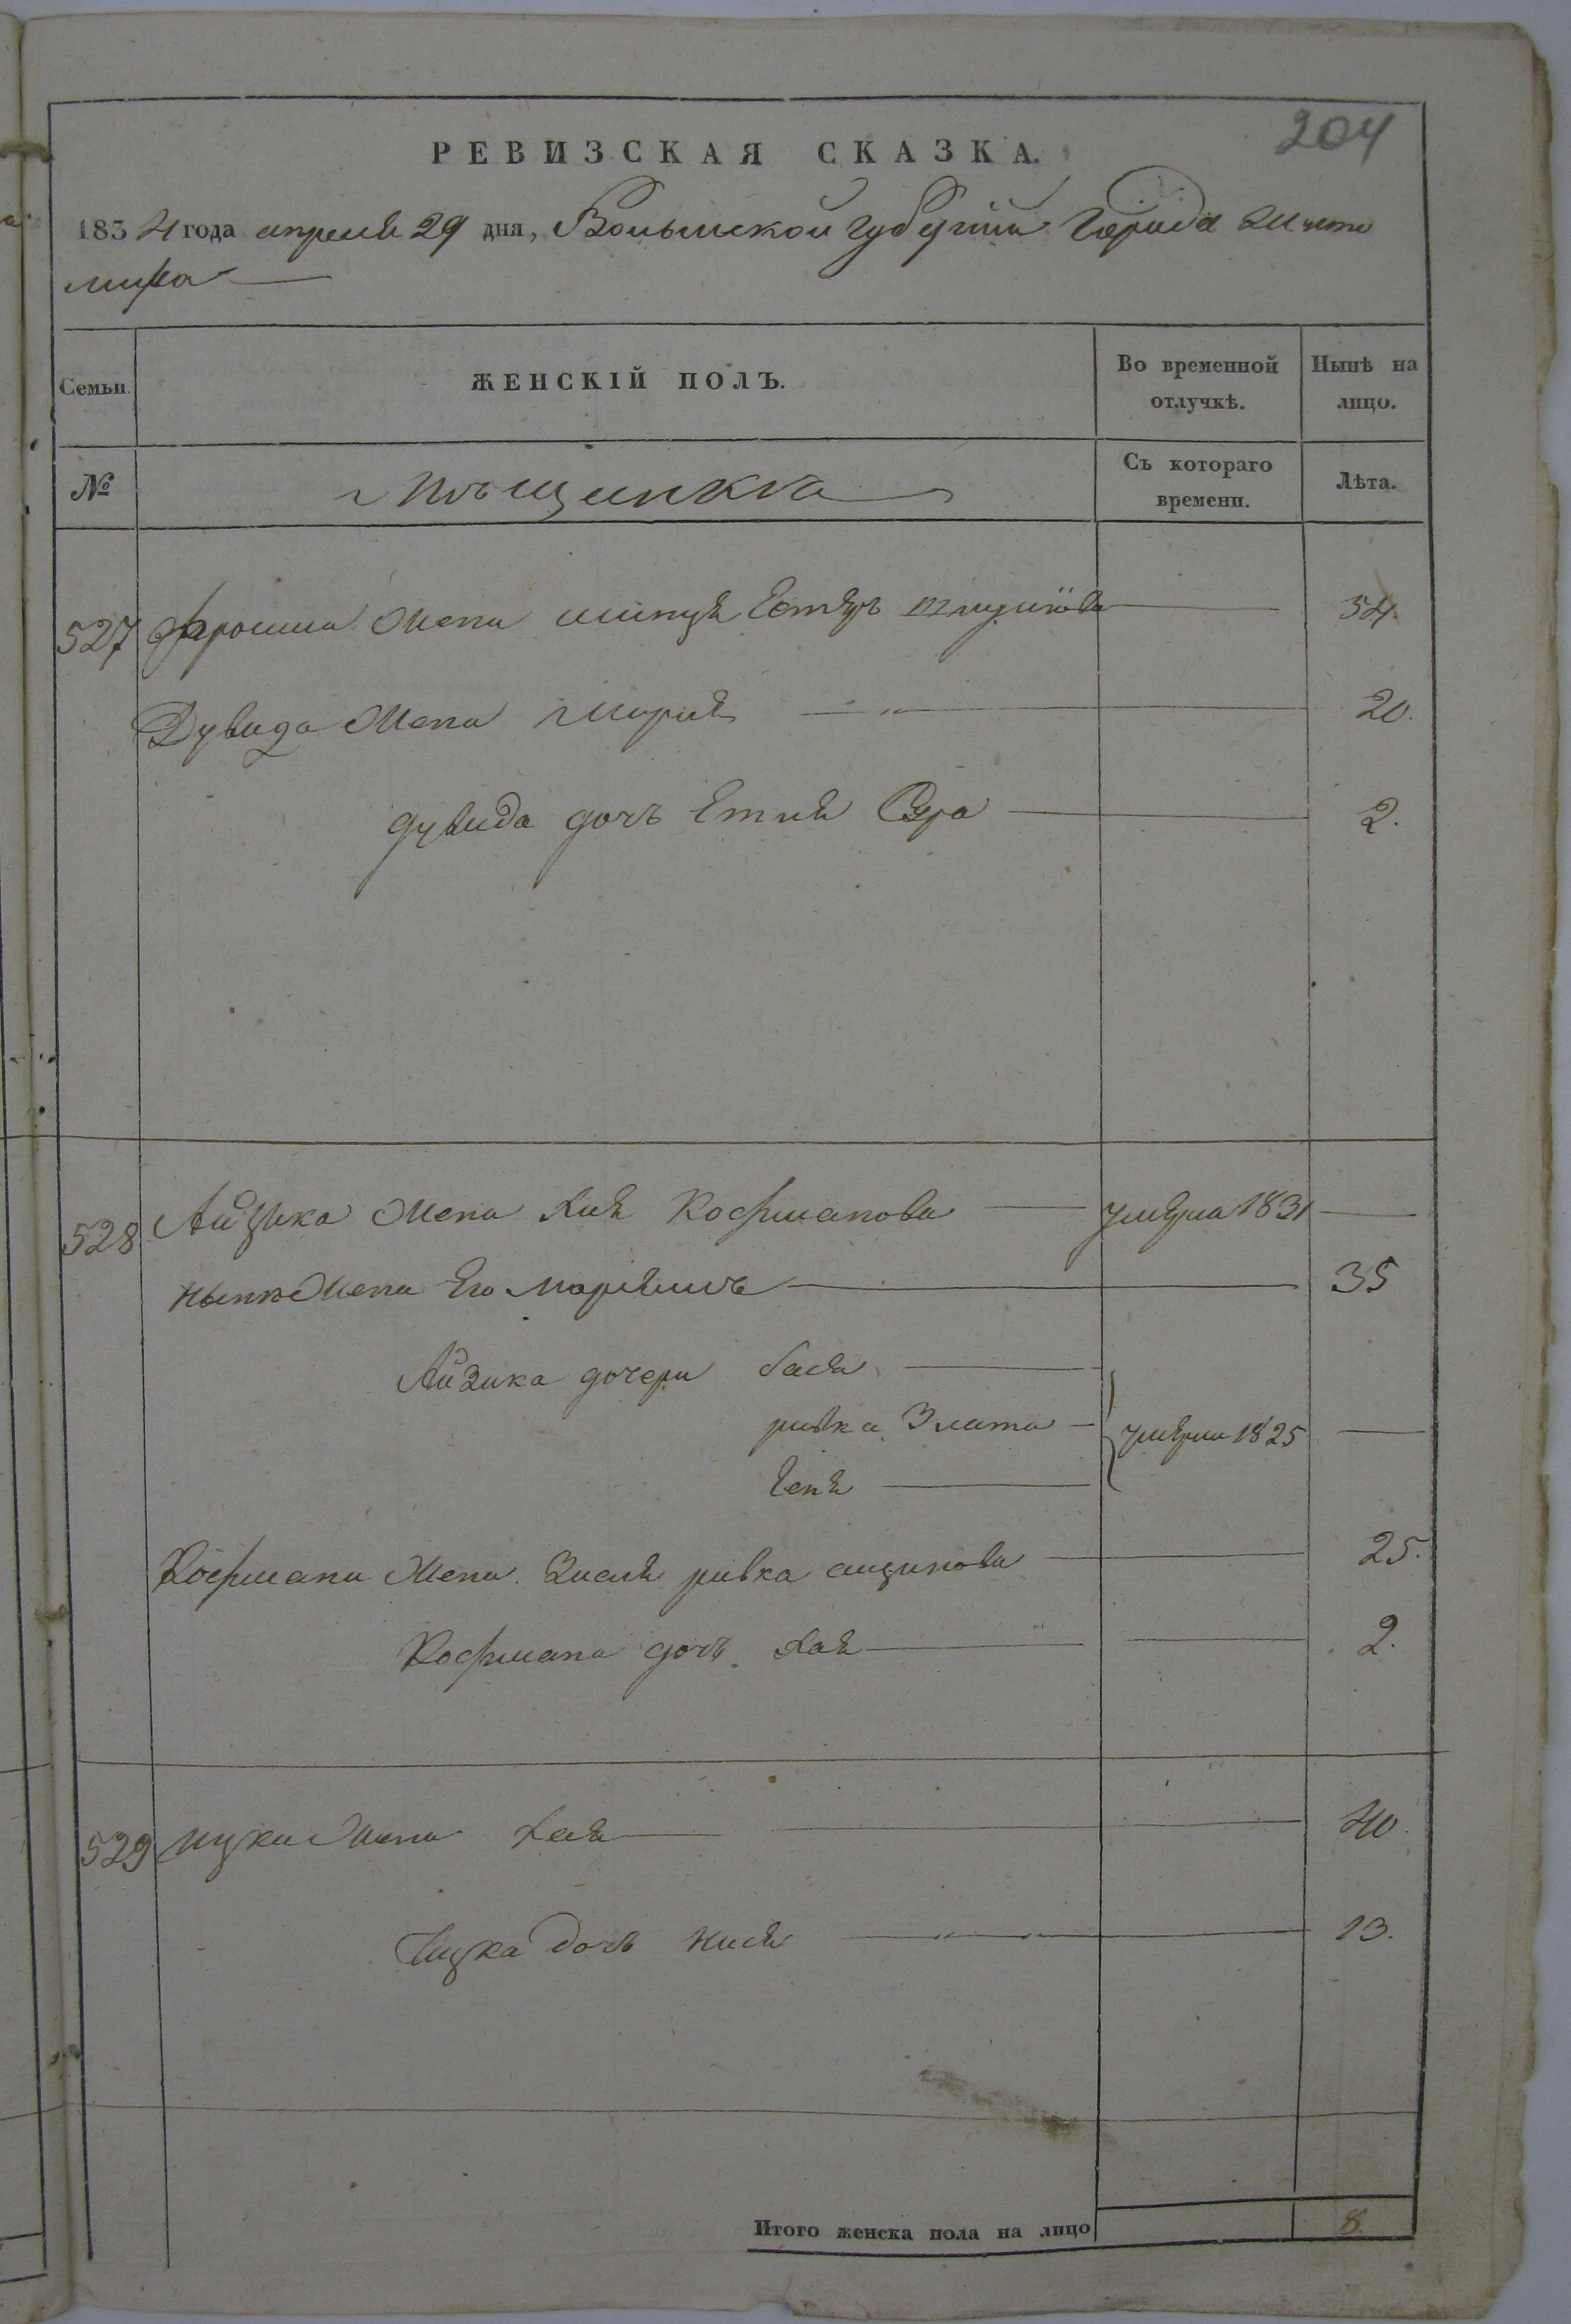 204
РЕВИЗСКАЯ СКАЗКА.
1834 года апреля 29 дня, Волынской губернии Города Жито
мира
Семьи. ЖЕНСКІЙ ПОЛЪ. Во временной отлучкѣ. Нынѣ на лицо.
№ Мѣщанка Съ котораго времени. Лѣта.
527 Фроима жена Минця Естеръ 54.
Дувида жена Мирия 20.
Дувида дочь Етля Сура 2.
528 Айзика жена Хая Кофманова умерла 1831
ныне жена Его Маріямъ 35
Айзика дочери бася
ривка Злата умерли 1825
Геня
Кофмана жена Зисля ривка 25.
Кофмана дочь Хая 2.
529 ицка жена Хая 40.
Ицка дочь Нися 13.
Итого женска пола на лицо 8.